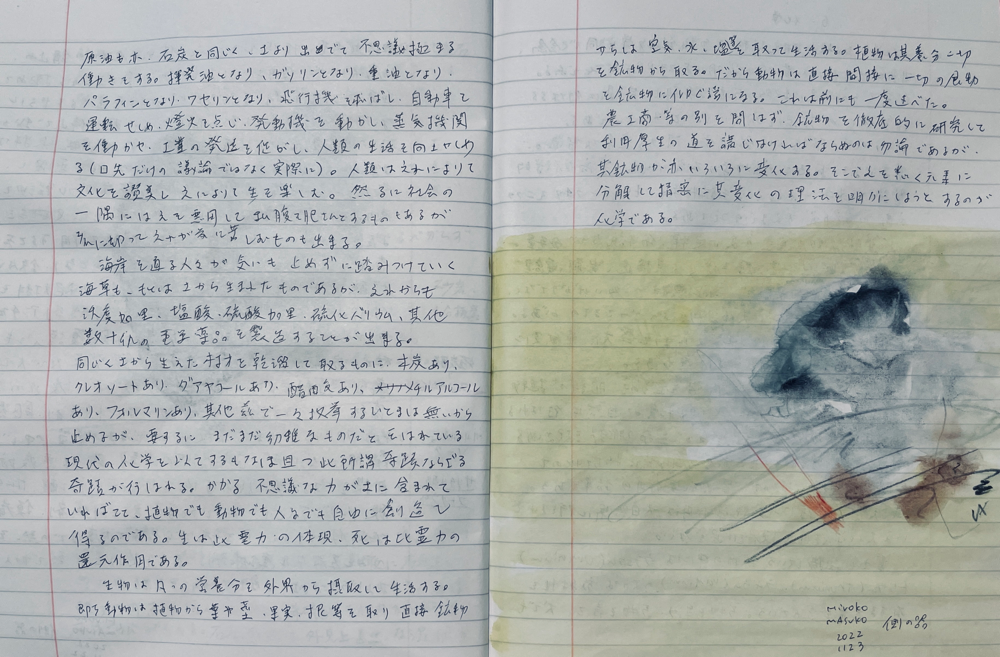 原油も亦、石炭と同じく、土より出でて不思議極まる
働きをする。揮発油となり、ガソリンとなり、重油となり、
パラフィンとなり、ワセリンとなり、飛行機を飛ばし、自動車を
運転せしめ、燈火を点じ、発動機を動かし、蒸気機関
を働かせ、工業の発達を促がし、人類の生活を向上せしめ
る(口先だけの議論ではなく実際に)。人類はそれによりて
文化を讃美しそれによりて生を楽しむ。然るに社会の
一隅にはそを悪用して私腹を肥さんとするものもあるが
為に苦しむものも出来る。
海岸を通る人々が気にも止めずに踏みつけていく
海草も、もとは土から生まれたものであるが、それからも
沃度加里、塩酸、硫酸加里、其他
数十種の薬品を製造することが出来る。
同じく土から生えた木材を乾溜して取るものに、木炭あり、
クレオソートあり、グアヤコールあり、醋酸あり、メチルアルコール
あり、フォルマリンあり、其他茲で一々枚挙するいとまは無いから
止めるが、要するにまだまだ幼稚なものだと云はれている
現代の化学を以てするもなほ且つ此所謂奇蹟ならざる
奇蹟が行はれる。かかる不思議な力が土に含まれて
いればこそ、植物でも動物でも人々でも自由に創造し
得るのである。生は此霊力の体現、死は此霊力の
還元作用である。
生物は凡ての営養分を外界から摂取して生活する。
即ち動物は植物から葉や茎、果実、根等を取り直接鉱物
からは空気、水、塩等を取って生活する。植物は其養分一切
を鉱物から取る。だから動物は直接間接に一切の
を鉱物に仰ぐ譯になる。これは前にも一度述べた。
農工商等の別を問はず、鉱物を徹底的に研究して
利用厚生の道を講じなければならぬのは勿論であるが、
其鉱物が亦いろいろに変化する。そこでそを元素に
分解して精密に其変化の理法を明かにしようとするのが
化学である。
MIYOKO
MASUKO
2022
1123